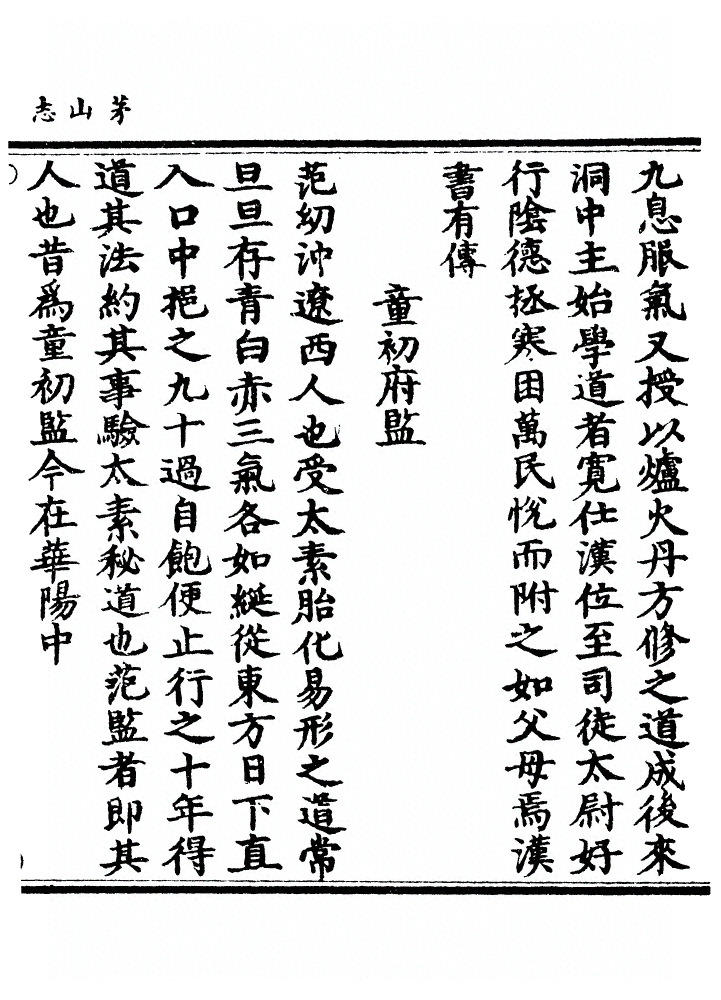 茅山志
九息服氣又授以爐火丹方修之道成後來
洞中主始學道者寬仕漢位至司徒太尉好
行陰德拯寒困萬民悅而附之如父母焉漢
書有傳
童初府監
范幼沖遼西人也受太素胎化易形之道常
旦旦存青白赤三氣各如綖從東方日下直
入口中挹之九十過自飽便止行之十年得
道其法約其事驗太素秘道也范監者即其
人也昔爲童初監今在華陽中